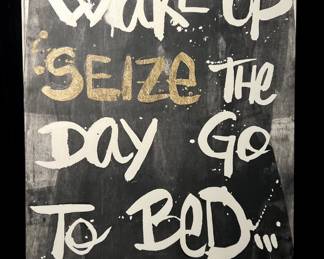 WAKE UP
SEIZE THE
DAY GO
TO BED...